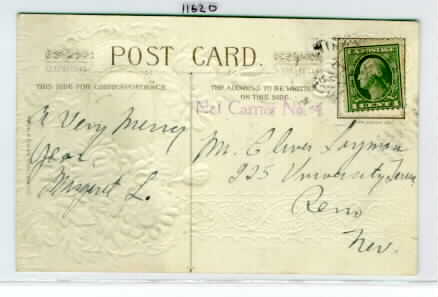 11620
POST CARD.
THIS SIDE FOR CORRESPONDENCE.
THE ADDRESS TO BE WRITTEN
ON THIS SIDE.
Carrier No. 4
A Very Merry
Year
Margaret L.
Mr. Oliver Layman
225 University Terrace
Reno
Nev.